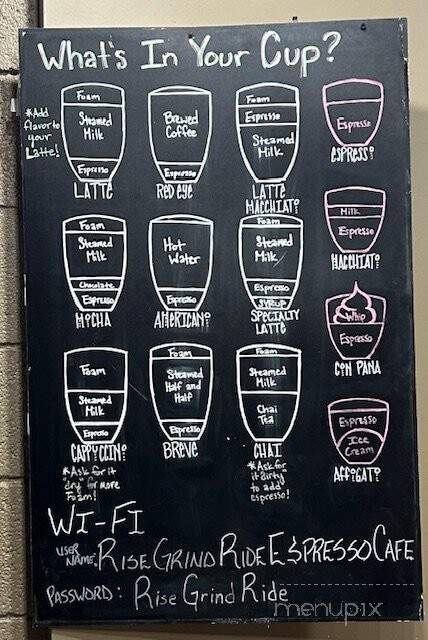 What's In Your Cup?
*Add
flavor to
your
Latte!
Foam
Steamed
Milk
Espresso
LATTE
Brewed
Coffee
Espresso
RED EYE
Foam
Espresso
Steamed
Milk
LATTE
MACCHIATO
Espresso
ESPRESSO
Foam
Steamed
Milk
Chocolate
Espresso
MOCHA
Hot
Water
Espresso
AMERICANO
Foam
Steamed
Milk
Espresso
SYRUP
SPECIALTY
LATTE
Milk
Espresso
MACCHIATO
Whip
Espresso
CON PANA
Foam
Steamed
Milk
Espresso
CAPPUCCINO
*Ask for it
"dry" for more
Foam!
Foam
Steamed
Half and
Half
Espresso
BREVE
Foam
Steamed
Milk
Chai
Tea
CHAI
*Ask for
it "dirty"
to add
espresso!
Espresso
Ice
Cream
AFFOGATO
WI-FI
USER
NAME: RISE GRIND RIDE ESPRESSO CAFE
PASSWORD: Rise Grind Ride
menupix